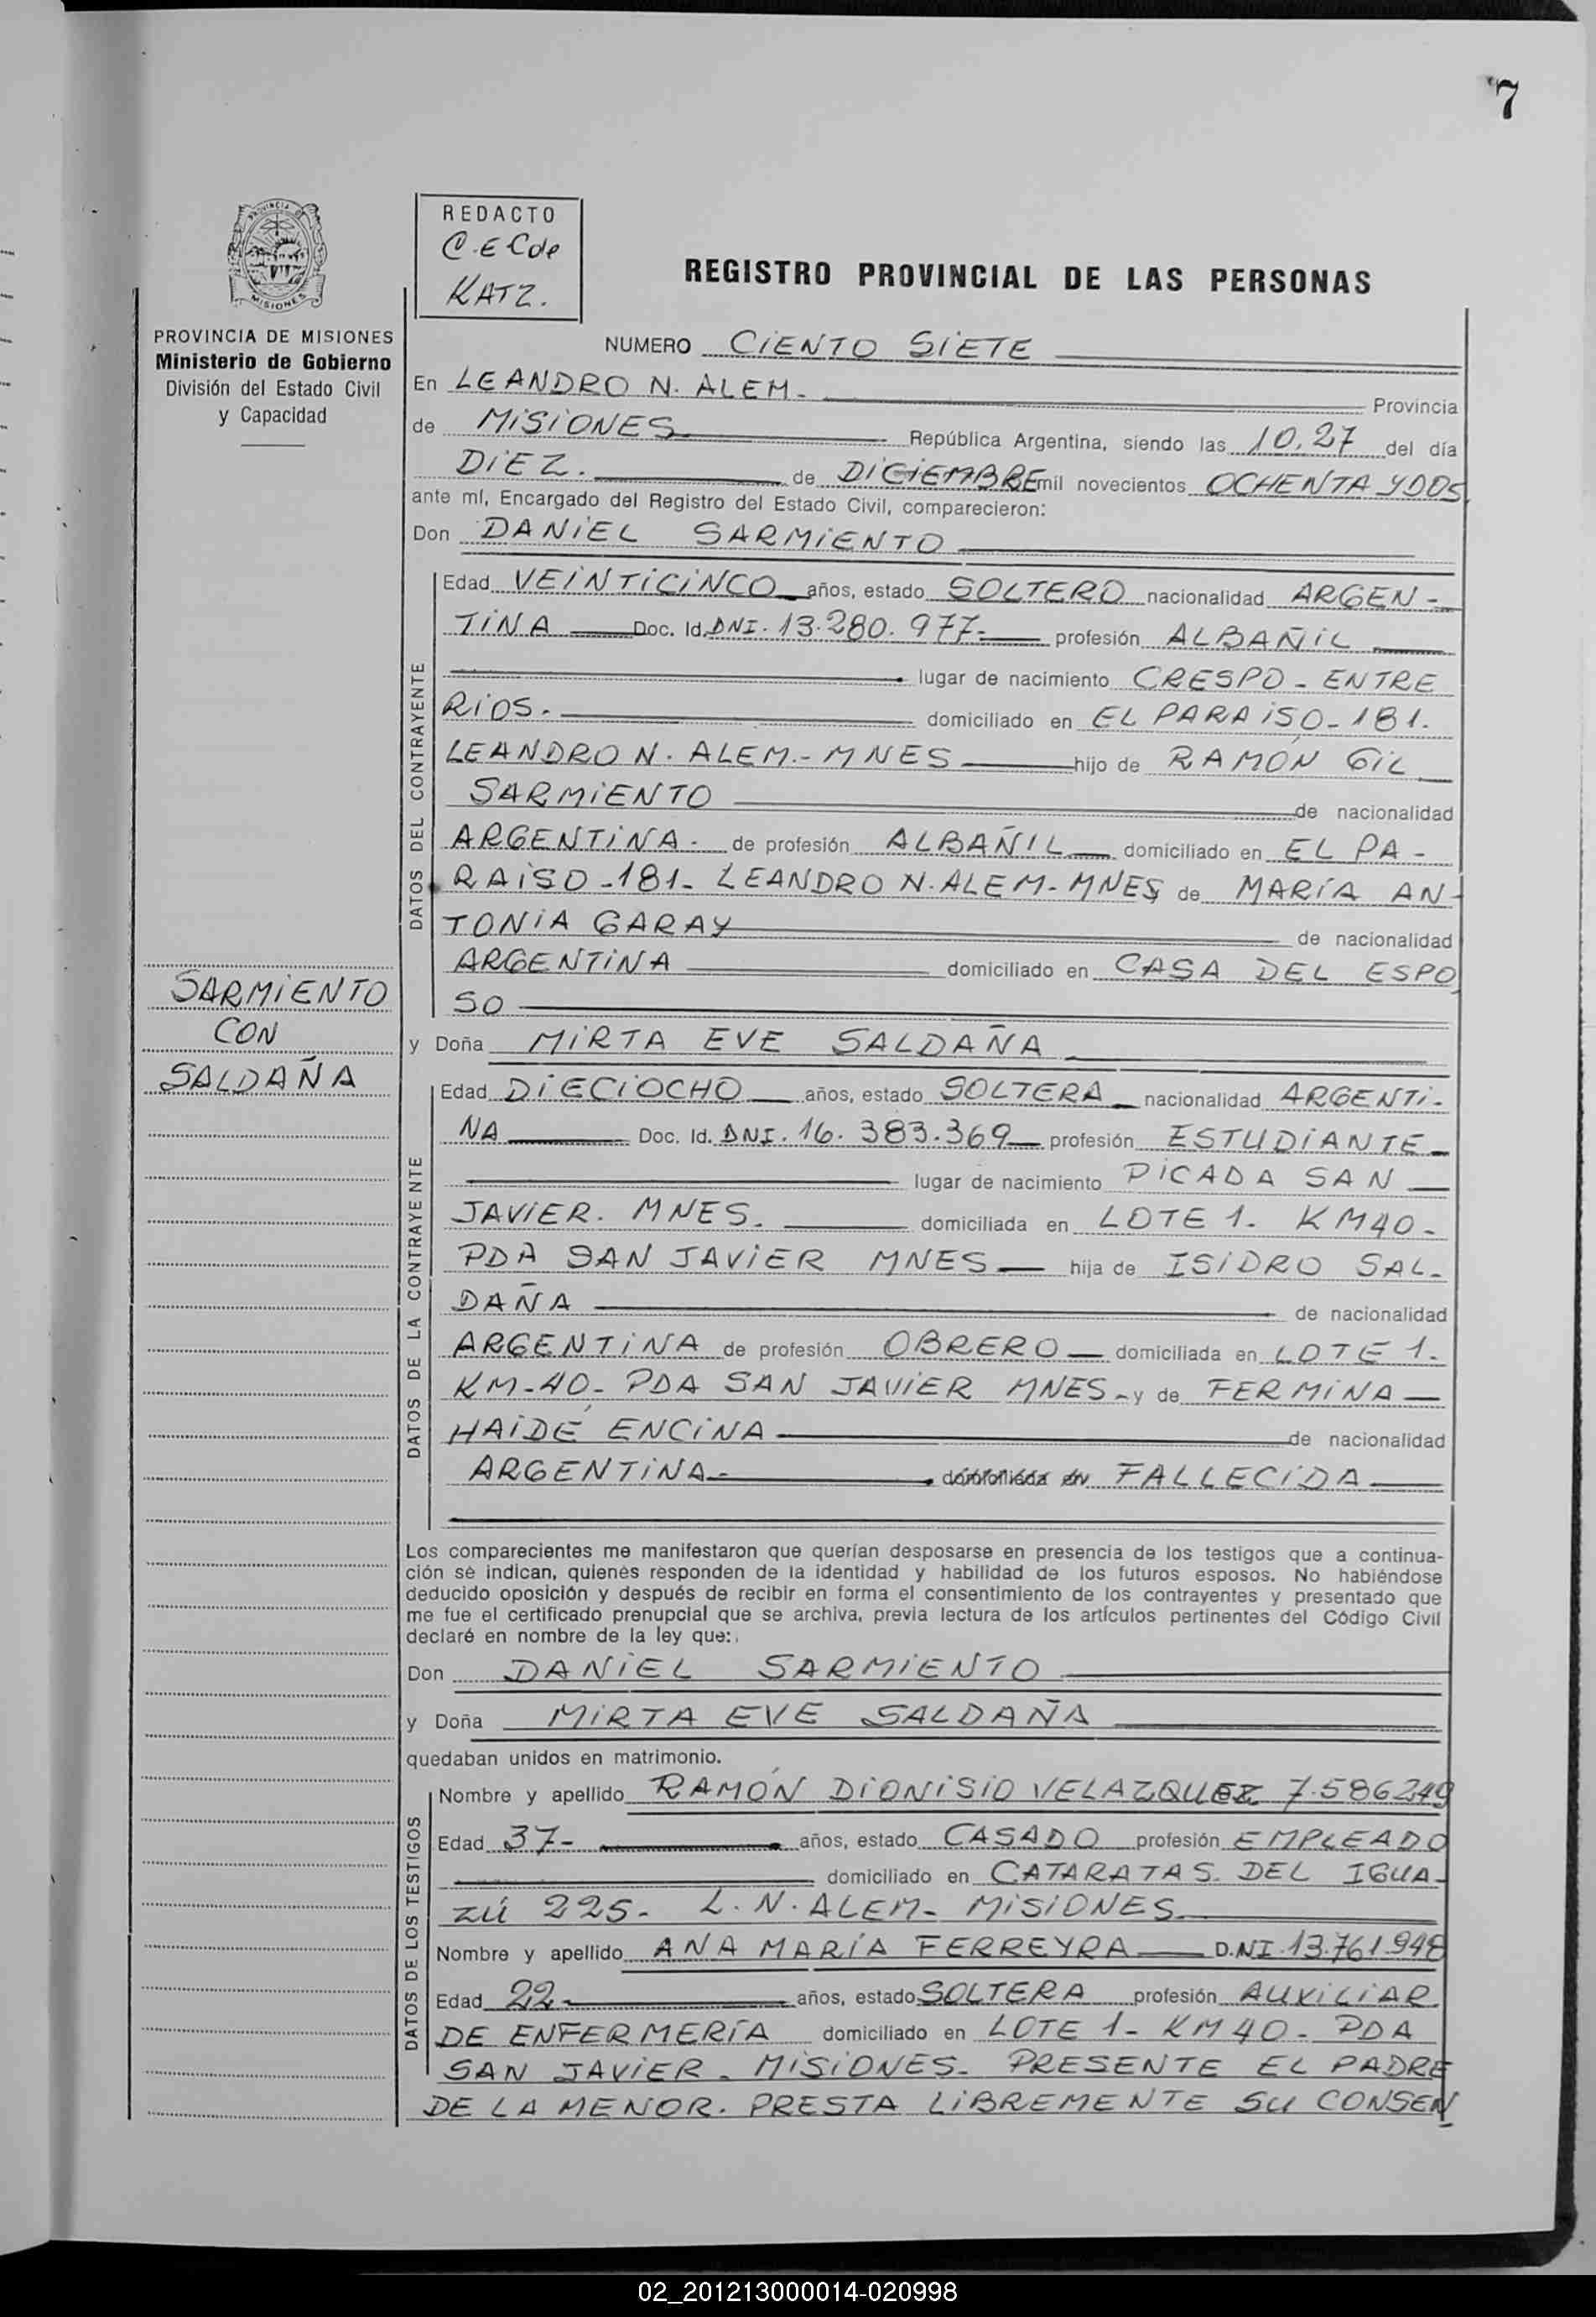 7
PROVINCIA DE
MISIONES
PROVINCIA DE MISIONES
Ministerio de Gobierno
División del Estado Civil
y Capacidad
REDACTO
C.E.C de
KATZ.
REGISTRO PROVINCIAL DE LAS PERSONAS
NUMERO CIENTO SIETE
En LEANDRO N. ALEM- Provincia
de MISIONES República Argentina, siendo las 10,27 del día
DIEZ. de DICIEMBRE mil novecientos OCHENTA Y DOS
ante mí, Encargado del Registro del Estado Civil, comparecieron:
Don DANIEL SARMIENTO
DATOS DEL CONTRAYENTE
Edad VEINTICINCO años, estado SOLTERO nacionalidad ARGEN-
TINA Doc. Id. DNI. 13.280.977- profesión ALBAÑIL
lugar de nacimiento CRESPO - ENTRE
RIOS. domiciliado en EL PARAISO-181.
LEANDRO N. ALEM.- MNES hijo de RAMÓN GIL
SARMIENTO de nacionalidad
ARGENTINA. de profesión ALBAÑIL domiciliado en EL PA-
RAISO-181- LEANDRO N. ALEM-MNES y de MARÍA AN-
TONIA GARAY de nacionalidad
ARGENTINA domiciliado en CASA DEL ESPO
SO
SARMIENTO
CON
SALDAÑA
y Doña MIRTA EVE SALDAÑA
DATOS DE LA CONTRAYENTE
Edad DIECIOCHO años, estado SOLTERA nacionalidad ARGENTI-
NA Doc. Id. DNI. 16.383.369 profesión ESTUDIANTE
lugar de nacimiento PICADA SAN
JAVIER. MNES. domiciliada en LOTE 1. KM40-
PDA SAN JAVIER MNES hija de ISIDRO SAL-
DAÑA de nacionalidad
ARGENTINA de profesión OBRERO domiciliada en LOTE 1.
KM-40- PDA SAN JAVIER MNES-y de FERMINA
HAIDÉ ENCINA de nacionalidad
ARGENTINA- domiciliada en FALLECIDA
Los comparecientes me manifestaron que querían desposarse en presencia de los testigos que a continua-
ción se indican, quienes responden de la identidad y habilidad de los futuros esposos. No habiéndose
deducido oposición y después de recibir en forma el consentimiento de los contrayentes y presentado que
me fue el certificado prenupcial que se archiva, previa lectura de los artículos pertinentes del Código Civil
declaré en nombre de la ley que:
Don DANIEL SARMIENTO
y Doña MIRTA EVE SALDAÑA
quedaban unidos en matrimonio.
DATOS DE LOS TESTIGOS
Nombre y apellido RAMÓN DIONISIO VELAZQUEZ 7.586249
Edad 37- años, estado CASADO profesión EMPLEADO
domiciliado en CATARATAS DEL IGUA-
ZÚ 225- L.N. ALEM- MISIONES
Nombre y apellido ANA MARÍA FERREYRA D.NI.13.761.948
Edad 22- años, estado SOLTERA profesión AUXILIAR
DE ENFERMERÍA domiciliado en LOTE 1- KM 40- PDA
SAN JAVIER- MISIONES- PRESENTE EL PADRE
DE LA MENOR. PRESTA LIBREMENTE SU CONSEN
02_201213000014-020998